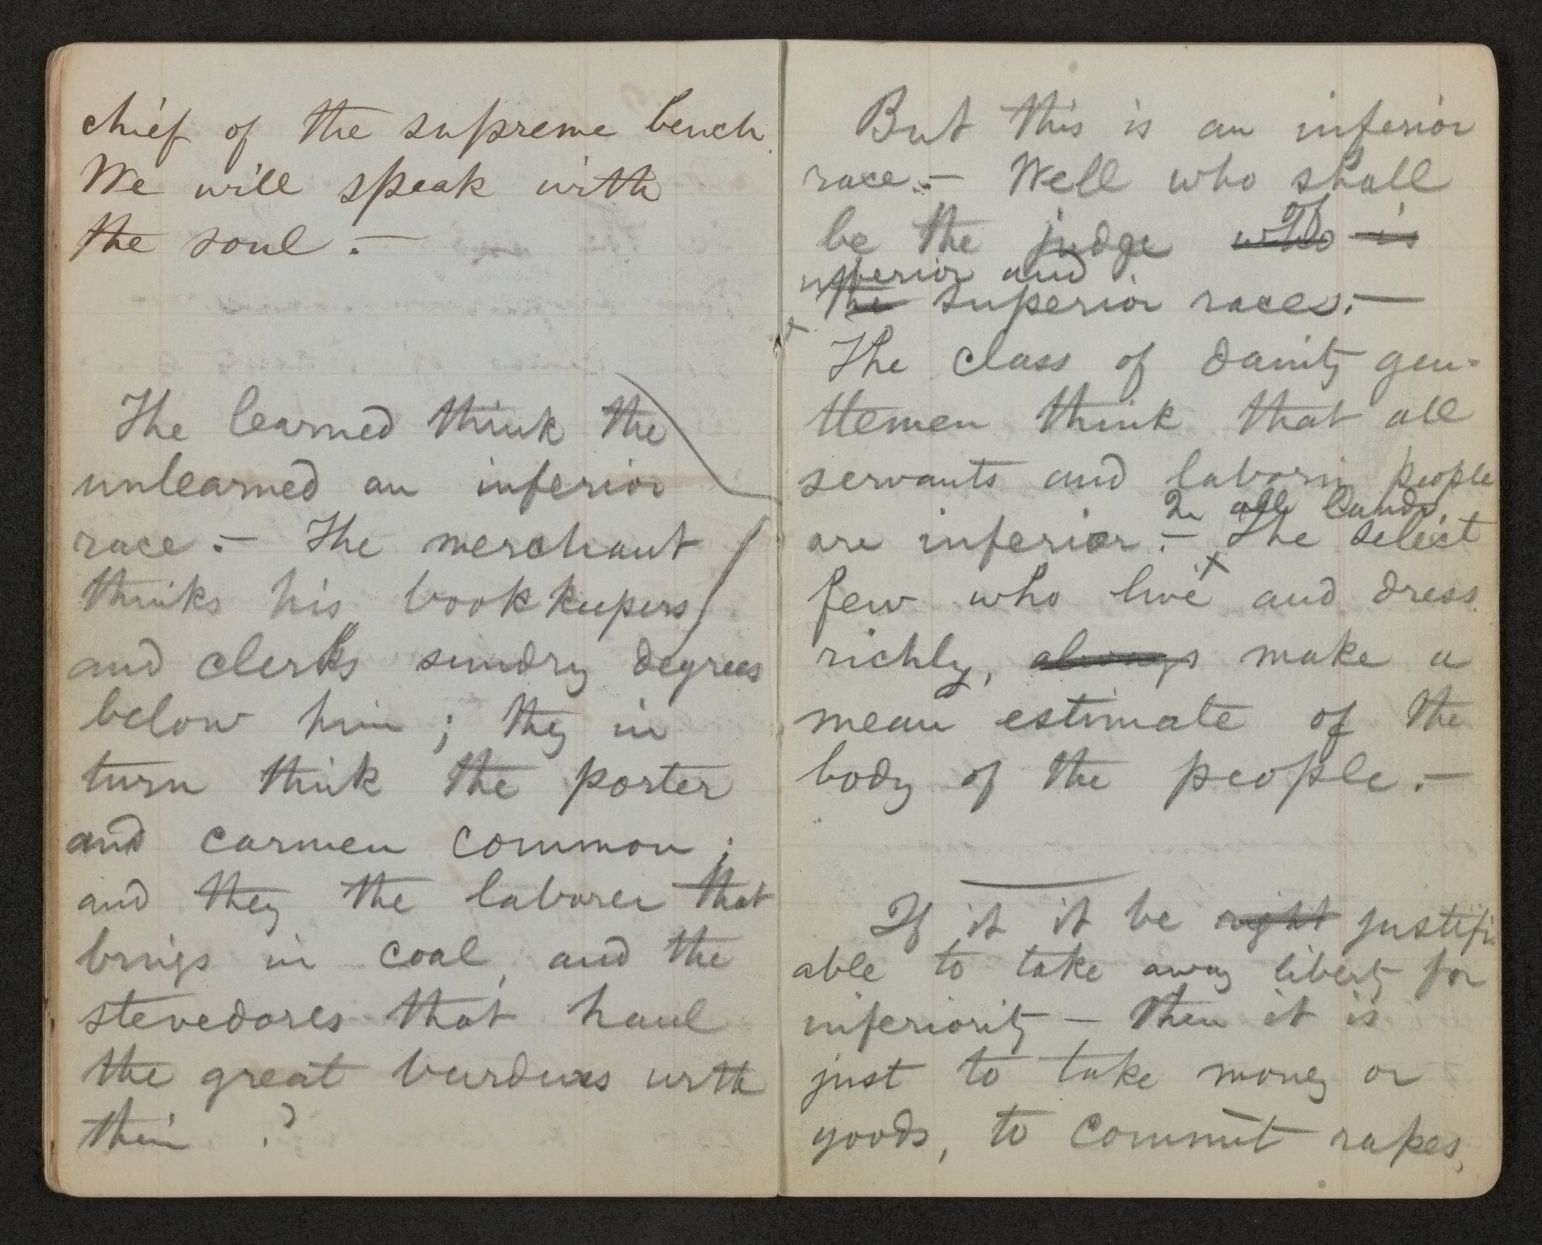 chief of the supreme bench.
We will speak with
the soul. —
The learned think the
unlearned an inferior
race. — The merchant
thinks his bookkeepers
and clerks sundry degrees
below him; they in
turn think the porter
and carmen common;
and they the laborer that
brings in coal, and the
stevedores that haul
the great burdens with
their ?
But this is an inferior
race. — Well who shall
be the judge who is
of
inferior and
the superior races. —
The class of dainty gen-
tlemen think that all
servants and laborin people
In all lands,
are inferior. — The select
few who live and dress
richly, always make a
mean estimate of the
body of the people. —
If it it be right justifi
able to take away liberty for
inferiority — then it is
just to take money or
goods, to commit rapes,